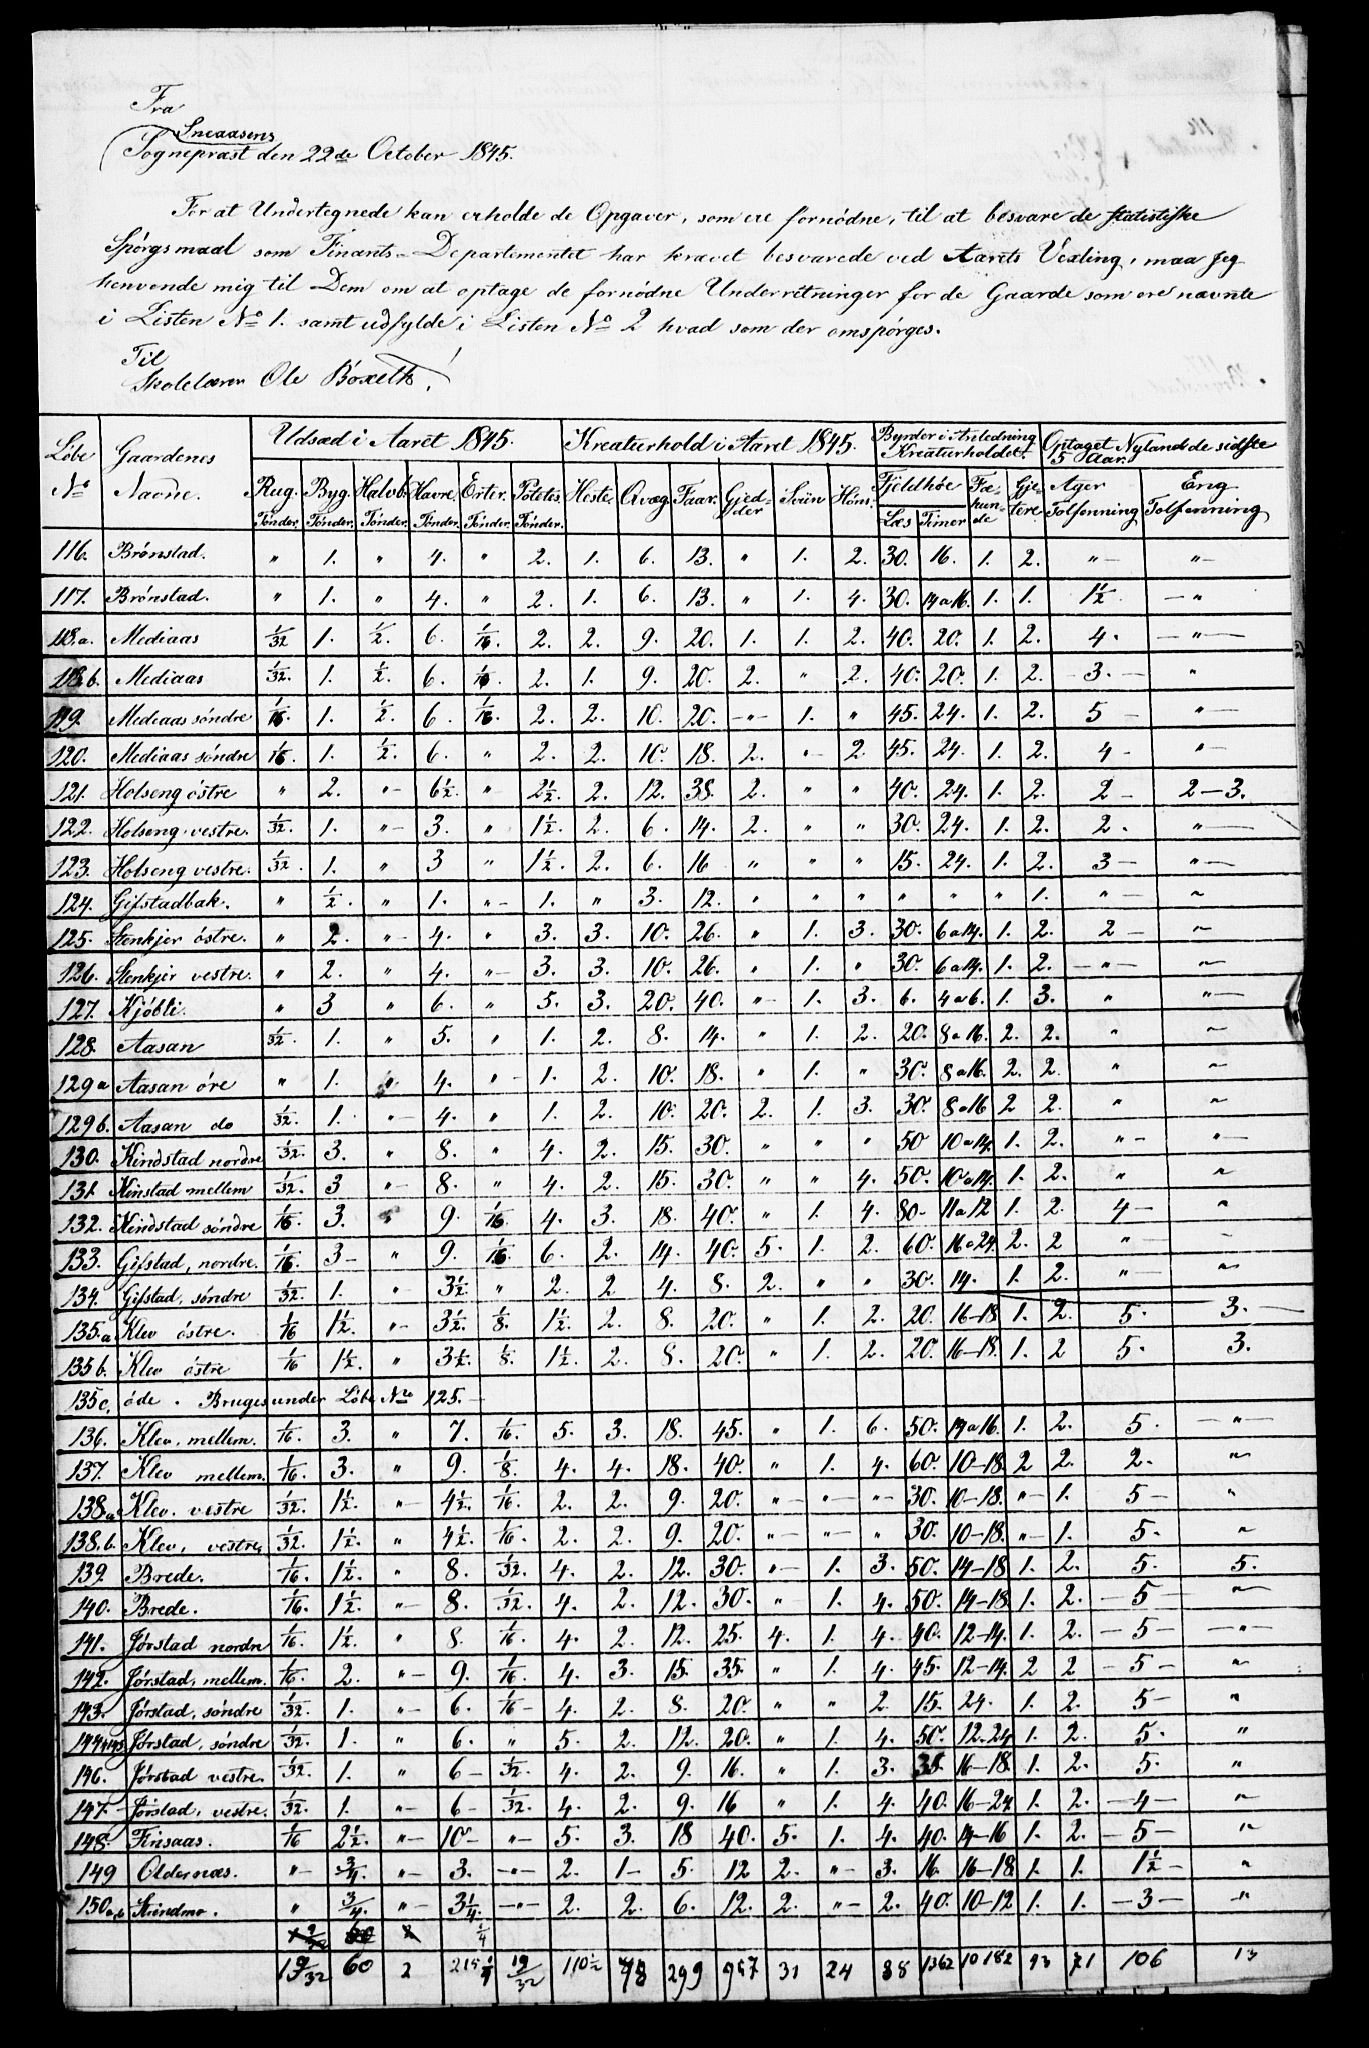 Fra
Sneaasens
Sognepræst den 22de October 1845.
For at Undertegnede kan erholde de Opgaver, som ere fornödne, til at besvare de statistiske
Spörgsmaal som Finants-Departementet har krævet besvarede ved Aarets Vexling, maa jeg
henvende mig til Dem om at optage de fornödne Underretninger for de Gaarde som ere nævnte
i Listen No 1. samt udfylde i Listen No 2 hvad som der omspörges.
Til
Skolelærer Ole
Löbe No Gaardenes Navne. Udsæd i Aaret 1845. Kreaturhold i Aaret 1845. Byrder i Anledning Kreaturholdet. Optaget Nyland de sidste 5 Aar.
Rug. Tönder. Byg. Tönder. Havre Tönder. Erter. Tönder. Potetes. Tönder. Heste. Qvæg. Faar. Gjedder Sviin Höns. Fjeldhöe Læs Timer Fæhunde Gjetere Ager Tolfönning Eng Tolfönning
116. Brönstad. " 1. " 4. " 2. 1. 6. 13. " 1. 2. 30. 16. 1. 2. " "
117. Brönstad. " 1. " 4. " 2. 1. 6. 13. " 1. 4. 30. 14 a 16. 1. 1. 1½ "
118.a. Mediaas 1/32 1. ½. 6. 1/16. 2. 2. 9. 20. 1. 1. 2. 40. 20. 1. 2. 4. "
118 b. Mediaas 1/32. 1. ½. 6. 1/16. 2. 1. 9. 20. 2. " 2. 40. 20. 1. 2. 3. "
119. Mediaas söndre 1/16. 1. ½. 6. 1/16. 2. 2. 10. 20. " 1. " 45. 24. 1. 2. 5 "
120. Mediaas söndre 1/16. 1. ½. 6. " 2. 2. 10. 18. 2. " 2. 45. 24. 1. 2. 4 "
121. Holseng östre " 2. " 6½. " 2½. 2. 12. 38. 2. " " 40. 24. 1. 2. 2 2-3.
122. Holseng vestre. 1/32. 1. " 3. " 1½. 2. 6. 14. 2. " " 30. 24. 1. 2. 2. "
123. Holseng vestre. 1/32. 1. " 3 " 1½. 2. 6. 16 " " " 15. 24. 1. 2. 3 "
124. Gifstadbak. " ½. " 1. " 1. " 3. 12. " " " " " " 1. " "
125. Stenkjer östre. " 2. " 4. " 3. 3. 10. 26. " 1. 3. 30. 6 a 14. 1. 2. 2 "
126. Stenkjer vestre. " 2. " 4. " 3. 3. 10. 26. " 1. " 30. 6 a 14. 1. 2. " "
127. Kjöbli. " 3 " 6. " 5. 3. 20. 40. " 1. 3. 6. 4 a 6. 1. 3. " "
128. Aasan 1/32. 1. " 5. " 1. 2. 8. 14. " 1. 2. 20. 8 a 16. 2. 2. " "
129 a Aasan öre " 1. " 4. " 1. 2. 10. 18. " 1. " 30. 8 a 16. 2. 2. " "
129 b. Aasan do 1/32. 1. " 4. " 1. 2. 10. 20. 2. 1. 3. 30. 8 a 16 2 2. " "
130. Kindstad nordre 1/32. 3. " 8. " 4. 2. 15. 30. " " " 50 10 a 14. 1. 2. " "
131. Kinstad mellem 1/32. 3 " 8. " 4. 2. 15. 30. " " 4. 50. 10 a 14. 1. 2. " "
132. Kindstad söndre 1/16. 3. " 9. 1/16. 4. 3. 18. 40. " 1. 4. 80 11 a 12 1. 2. 4 "
133. Gifstad, nordre. 1/16. 3 " 9. 1/16. 6. 2. 14. 40. 5. 1. 2. 60. 16 a 24. 2. 2 " "
134. Gifstad, söndre 1/32. 1. " 3½. " 2. 2 4. 8. 2. " " 30. 14. 1. 2. " "
135.a Klev östre. 1/16 1½. " 3½. 1/8. 1½. 2. 8. 20. " 1. 2. 20. 16-18. 1. 2. 5. 3.
135 b. Klev östre 1/16 1½. " 3½. 1/8. 1½. 2. 8. 20. " 1. 2. 20. 16-18. 1. 2 5. 3.
135 c. öde. Bruges under Löbe No 125.
136. Klev, mellem. 1/16. 3. " 7. 1/16. 5. 3. 18. 45. " 1. 6. 50. 14 a 16. 1. 2. 5. "
137. Klev mellem. 1/16. 3. " 9. 1/8 4. 4. 18. 40. " 1. 4. 60. 10-18. 2 2. 2. "
138.a Klev. vestre 1/32. 1½. " 4½. 1/16. 2. 2. 9. 20. " " " 30. 10-18. " 1. 5 "
138.b. Klev, vestre 1/32. 1½. " 4½. 1/16. 2. 2. 9. 20. " " " 30. 10-18. " 1. 5. "
139. Brede. 1/16. 1½. " 8. 1/32. 4. 2. 12. 30. " 1. 3. 50. 14-18 1. 2. 5. 5.
140. Brede. 1/16. 1½. " 8. 1/32. 4. 2. 12. 30. " 1. 4. 50. 14-18. 1. 2. 5 "
141. Jörstad nordre 1/16. 1½. " 8. 1/16. 4. 2. 12. 25. 4. 1. 4. 40. 12-14. 1. 2. 5 "
142. Jörstad, mellem. 1/16. 2. " 9. 1/16. 4. 3. 15. 35. " 1. 4. 45. 12-14. 2 2 5 "
143. Jörstad, söndre 1/32. 1. " 6. 1/16 4. 2 8. 20. " " 2. 15. 24. 1. 2. 5 "
144, 145 Jörstad, söndre 1/32. 1. " 6. " 5. 2. 12. 20. " 1. 4. 50. 12-24 1. 2. 5. "
146. Jörstad vestre. 1/32. 1. " 6 1/32. 4. 2. 9. 16. " 1. 3. 35. 16-18. 1. 2. 5. "
147. Jörstad, vestre. 1/32. 1. " 6 1/32. 4. 2. 9. 16 " 1. 4. 40. 16-24. 1. 2. 4 "
148. Finsaas. 1/16 2½. " 10 " 5. 3. 18 40. 5. 1. 4. 40. 14-16 1. 2. 5 "
149 Oldernæs. " ¾. " 3. " 2. 1 5. 12 2. " 3. 16. 16-18. 1. 1. 1½ "
150 a b " ¾. " 3¼. " 2. 2. 6. 12. 2. " 2. 40. 10-12 1. 1. 3 "
1 9/32 60 2 215¼ 19/32 110½ 78 299 957 31 24 88 1362 10 182 43 71 106 13